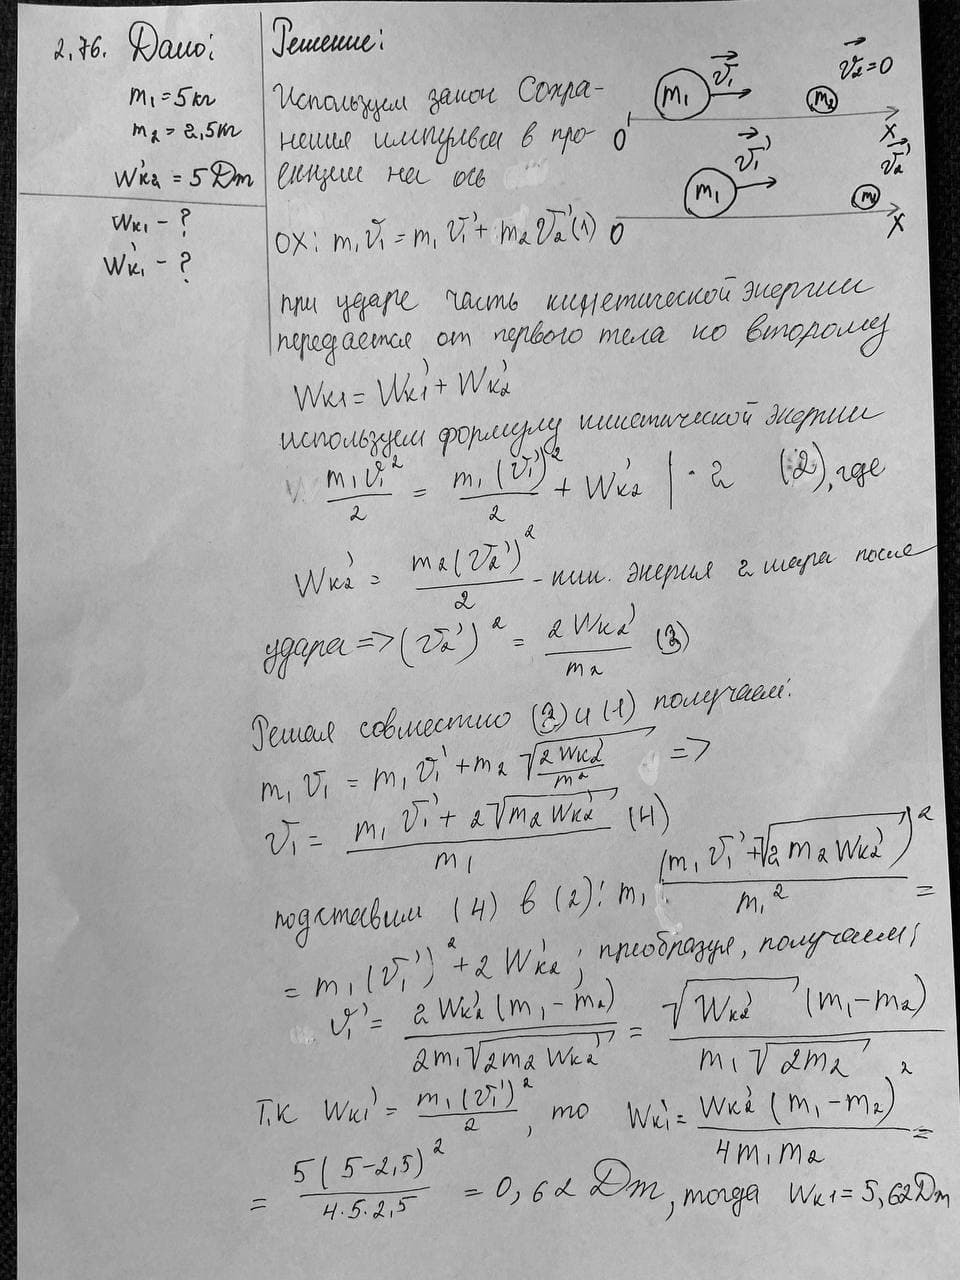 2.76. Дано:
m₁ = 5 кг
m₂ = 2,5 кг
Wк₂' = 5 Дж
Wк₁ - ?
Wк₁' - ?
Решение:
Используем закон Сохра-
нения импульса в про-
екции на ось
OX: m₁v₁ = m₁v₁' + m₂v₂' (1)
m₁ v₁ m₂ v₂ = 0
0 X
m₁ v₁' m₂ v₂'
0 X
при ударе часть кинетической энергии
передаётся от первого тела ко второму
Wк₁ = Wк₁' + Wк₂'
используем формулу кинетической энергии
m₁v₁²/2 = m₁(v₁')²/2 + Wк₂' | · 2 (2), где
Wк₂' = m₂(v₂')²/2 - кин. энергия 2 шара после
удара => (v₂')² = 2Wк₂'/m₂ (3)
Решая совместно (3) и (1) получаем:
m₁v₁ = m₁v₁' + m₂√(2Wк₂'/m₂) =>
v₁ = (m₁v₁' + 2√(m₂Wк₂'))/m₁ (4)
подставим (4) в (2): m₁ · (m₁v₁' + √(2m₂Wк₂'))²/m₁² =
= m₁(v₁')² + 2Wк₂'; преобразуя, получаем;
v₁' = 2Wк₂'(m₁ - m₂)/(2m₁√(2m₂Wк₂')) = √(Wк₂')(m₁ - m₂)/(m₁√(2m₂))
Т.к Wк₁' = m₁(v₁')²/2, то Wк₁' = Wк₂'(m₁ - m₂)²/(4m₁m₂) =
= 5(5-2,5)²/(4·5·2,5) = 0,62 Дж, тогда Wк₁ = 5,62 Дж